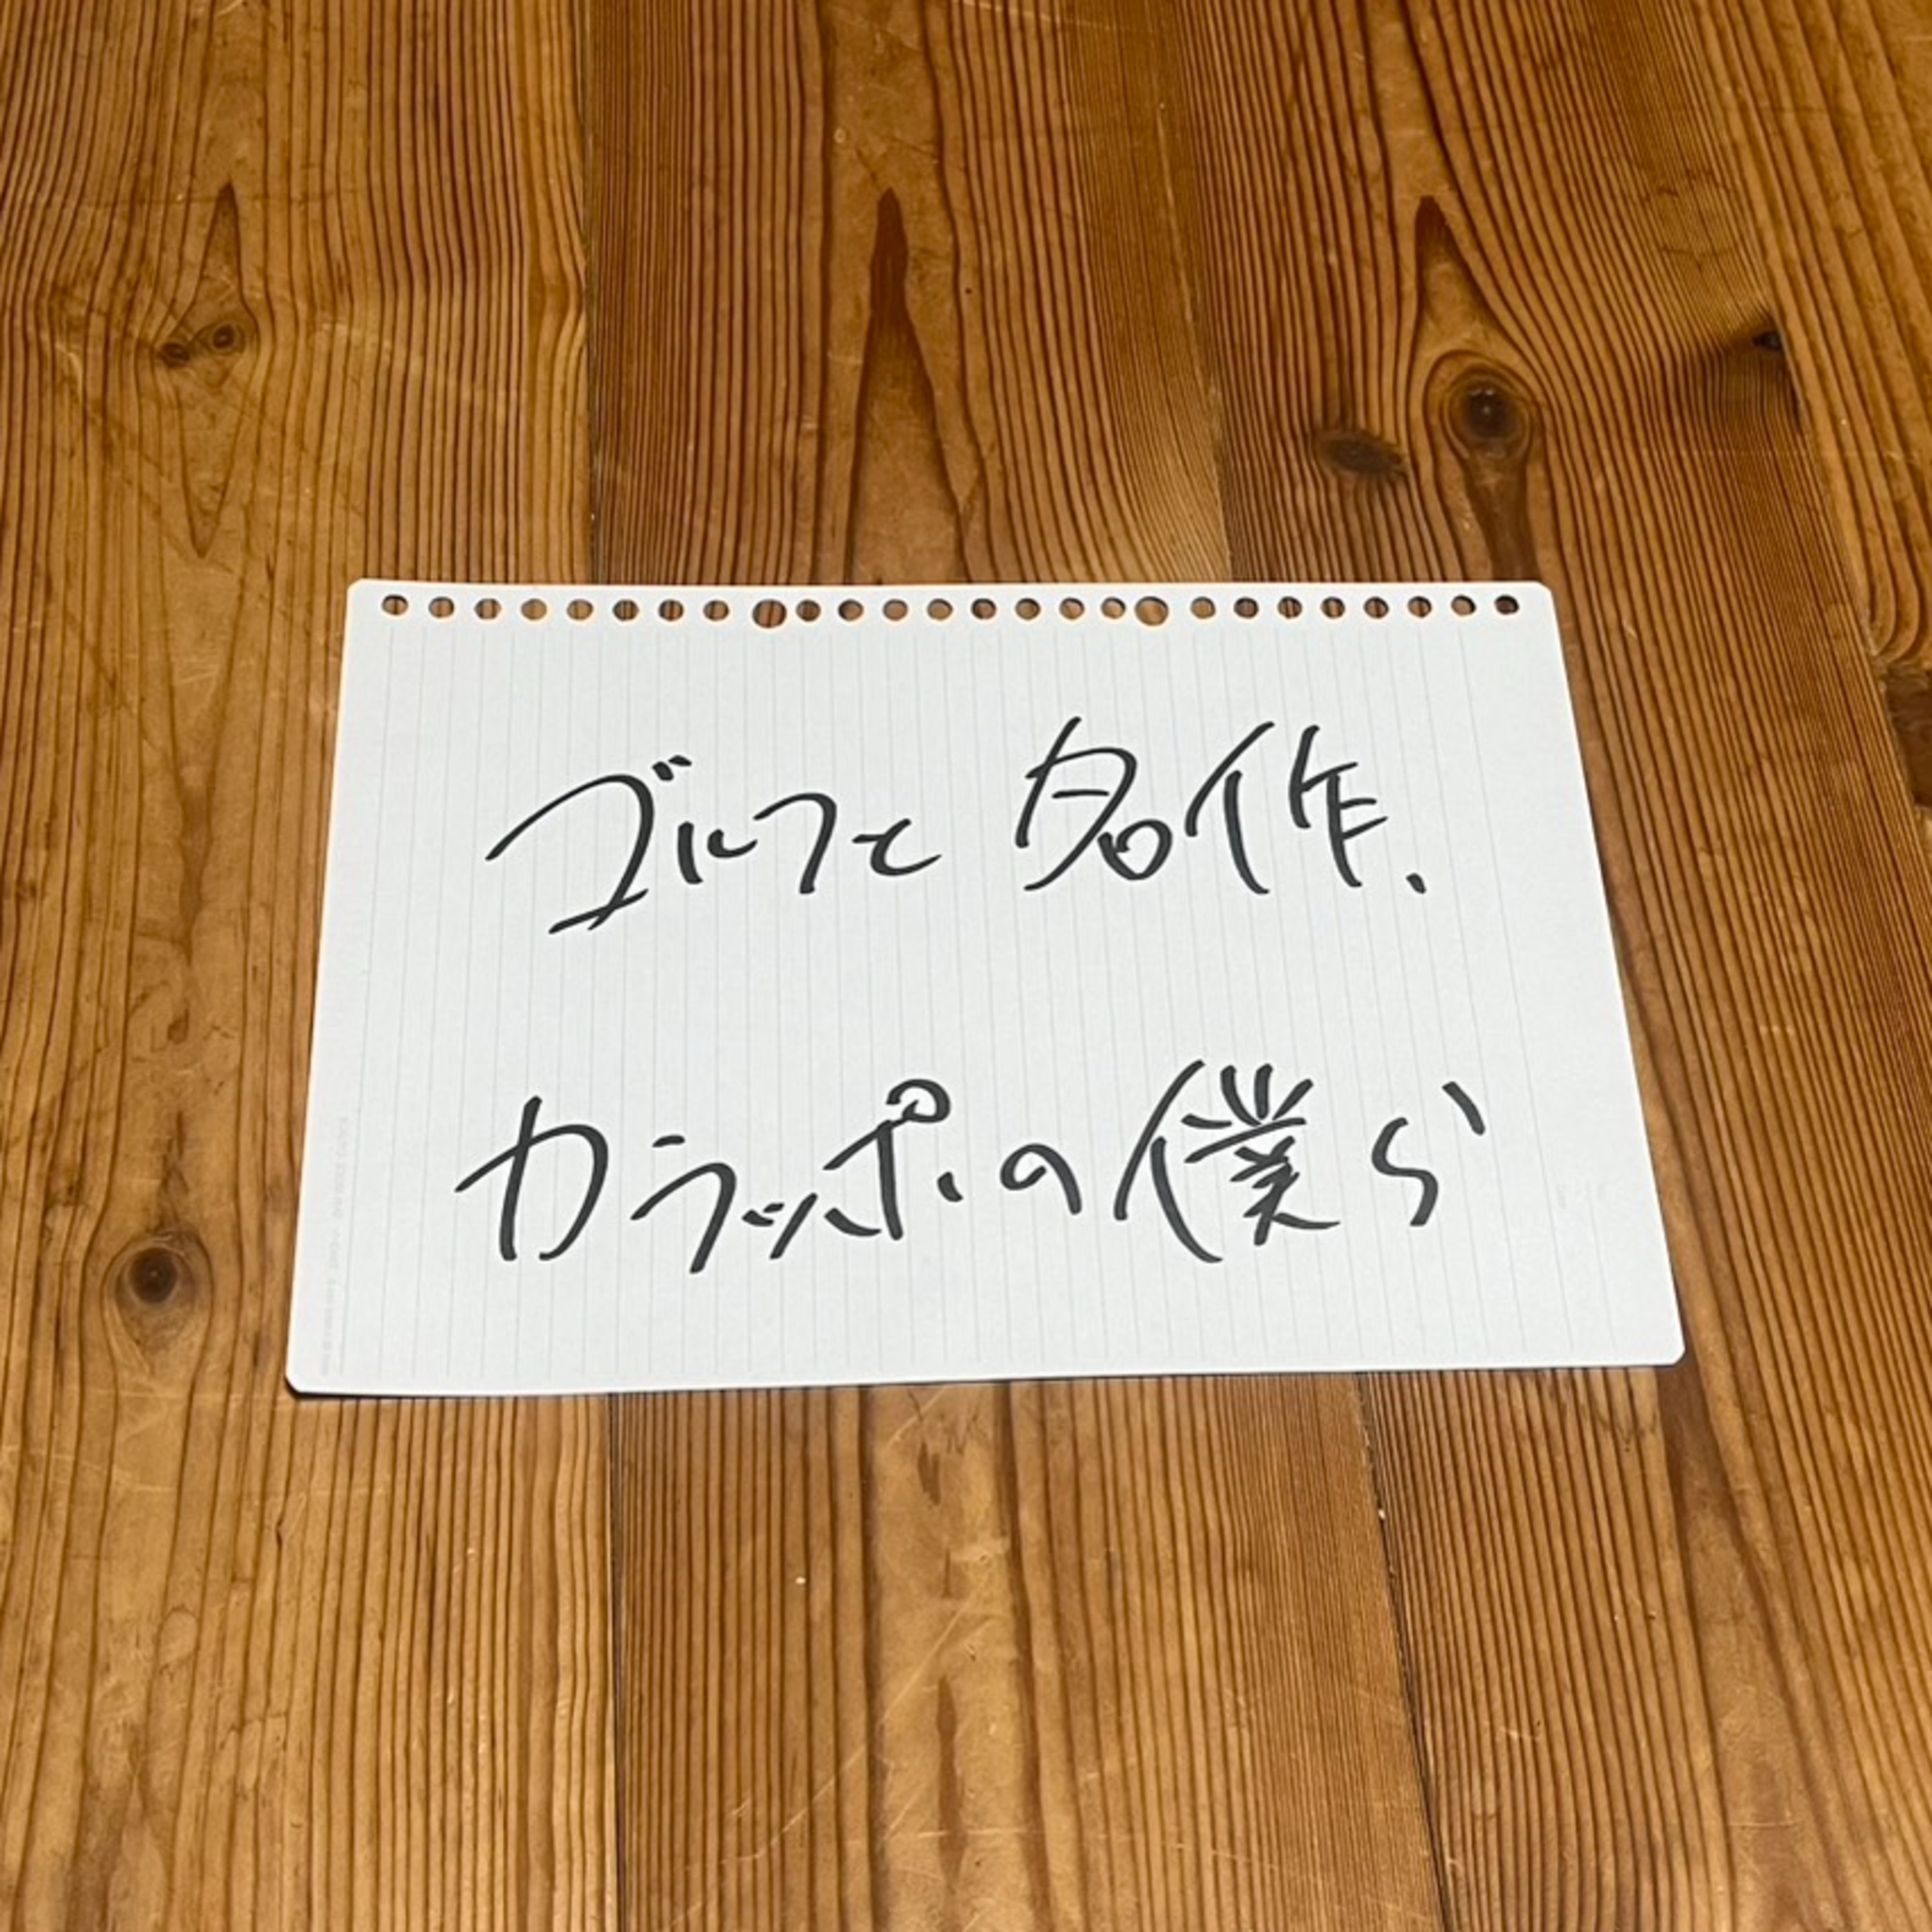 ゴルフと名作.
カラッポの僕ら